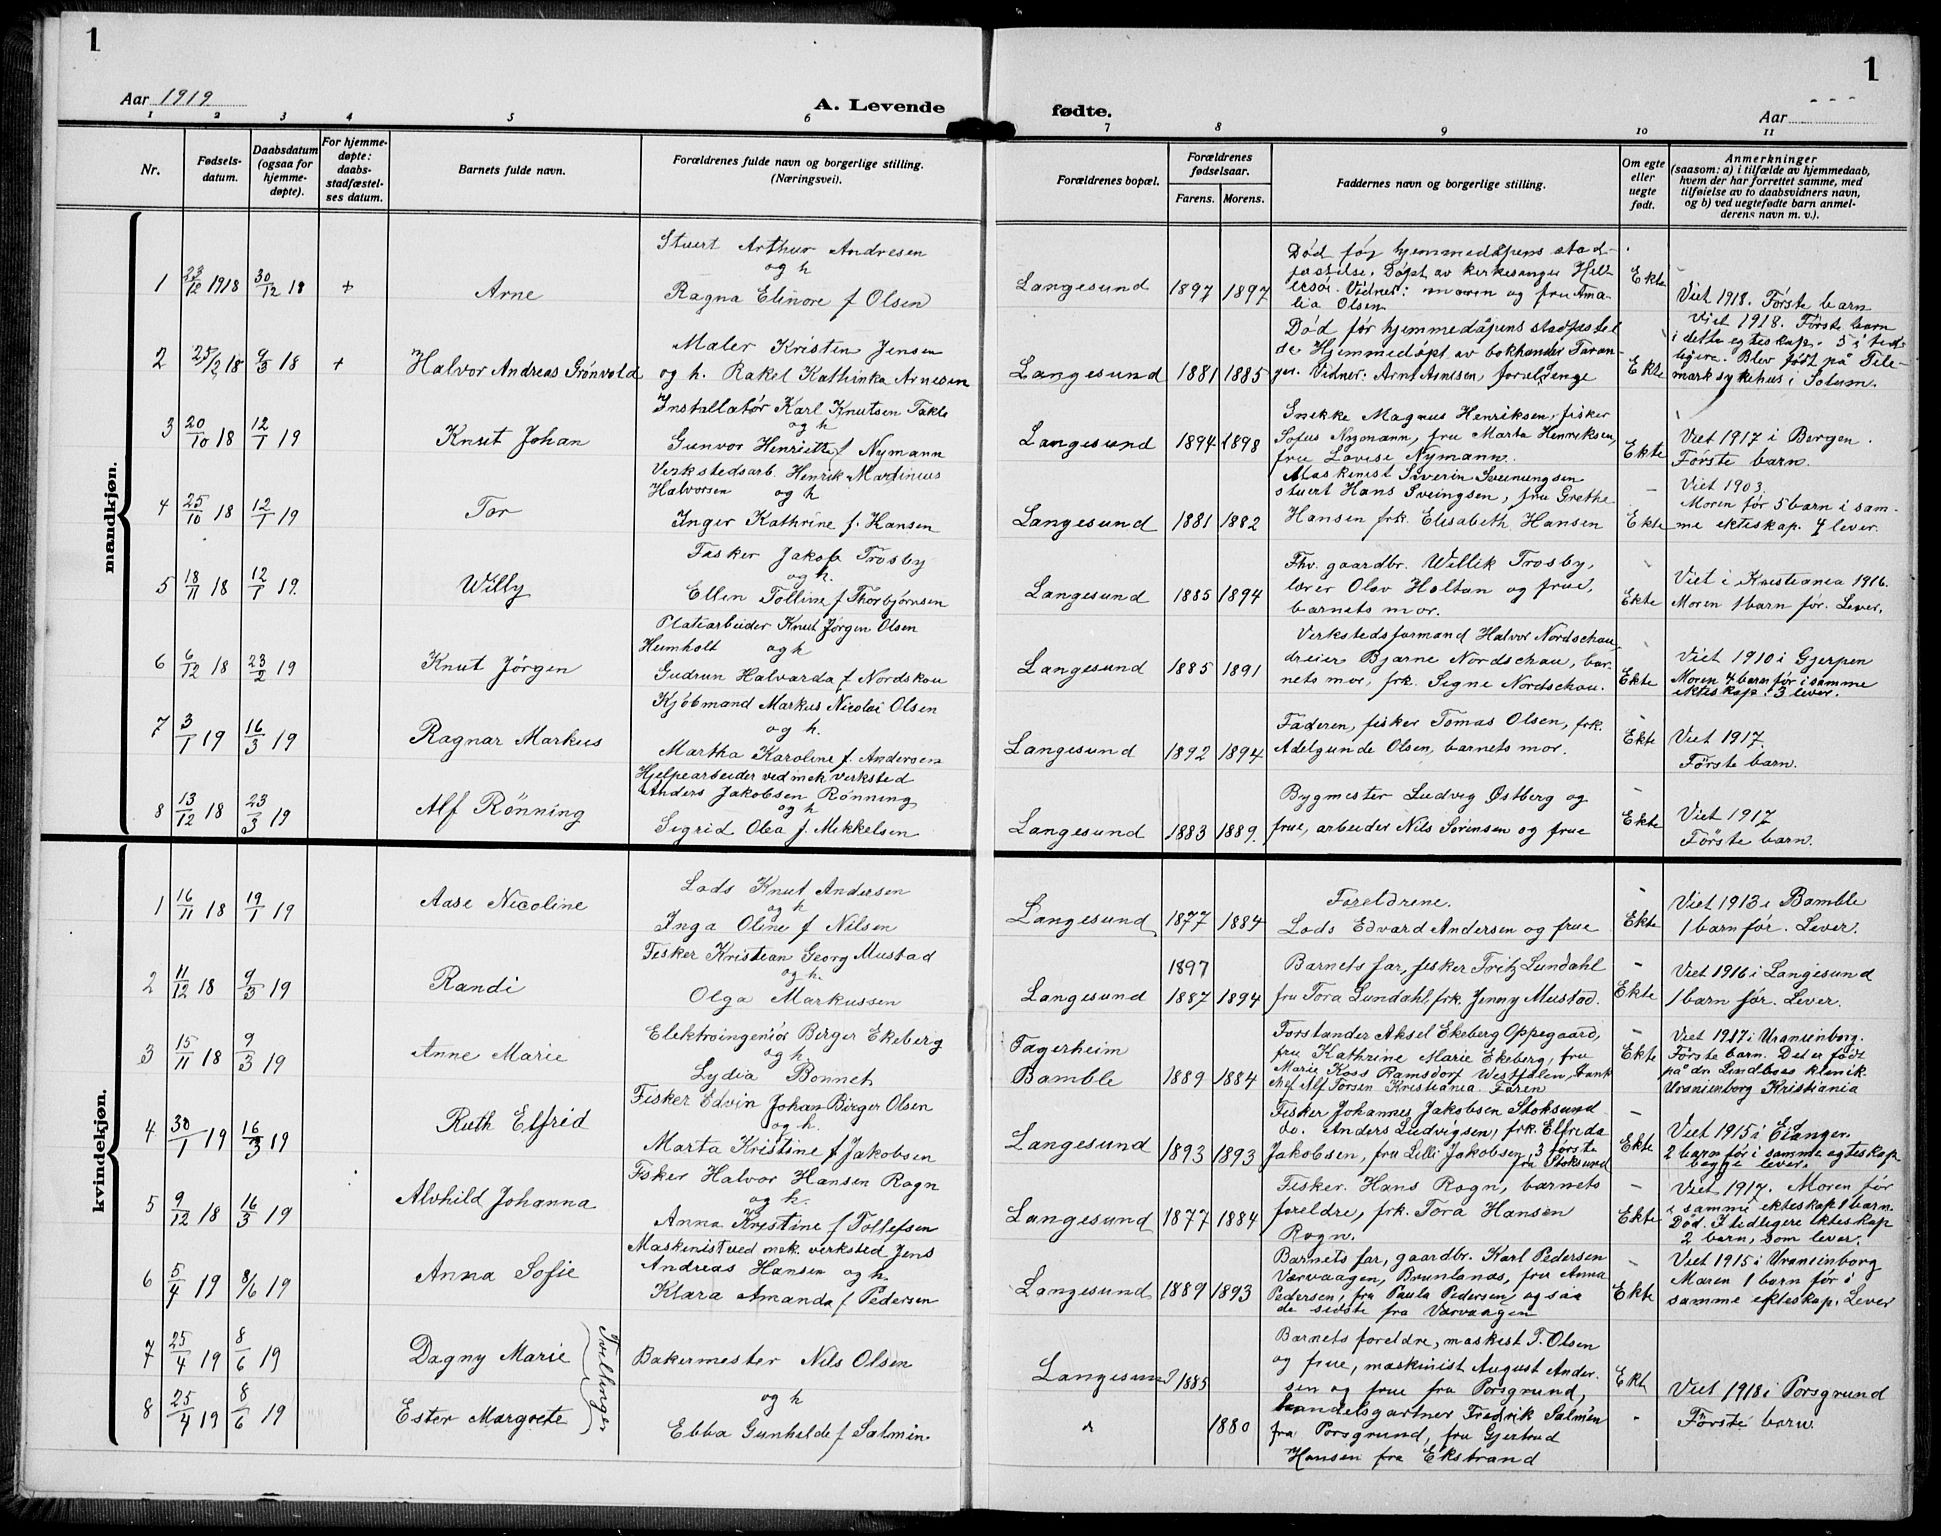 1
Aar 1919
A. Levende
1 2 3 4 5 6
Nr.
Fødsels-
datum.
Daabsdatum
(ogsaa for
hjemme-
døpte).
For hjemme-
døpte:
daabs-
stadfæstel-
ses datum.
Barnets fulde navn.
Forældrenes fulde navn og borgerlige stilling.
(Næringsvei).
mandkjøn.
Stuert Arthur Andresen
og h
1 23/12 1918 30/12 18 + Arne Ragna Elinore f Olsen
Maler Kristen Jensen
2 25/2 18 9/3 18 + Halvor Andreas Grönvold og h. Rakel Kathinka Arnesen
Installatör Karl Knutsen Takle
og h
3 20/10 18 12/1 19 Knut Johan Gunvor Henriette f Nymann
Verkstedsarb. Henrik Martinius
Halvorsen og h
4 25/10 18 12/1 19 Tor Inger Kathrine f. Hansen
Fisker Jakob Trosby
og h.
5 18/11 18 12/1 19. Willy Ellen Tolline f Thorbjørnsen
Platearbeider Knut Jörgen Olsen
Heimholt og h
6 6/12 18 23/2 19 Knut Jörgen Gudrun Halvarda f Nordskau
Kjöbmand Markus Nicolai Olsen
og h.
7 3/1 19 16/3 19 Ragnar Markus Martha Karoline f. Andersen
Hjelpearbeider ved mek verksted
Anders Jakobsen Rönning
og h
8 13/12 18 23/3 19 Alf Rönning Sigrid Olea f. Mikkelsen
kvindekjøn.
Lods Knut Andersen
og h
1 16/11 18 19/1 19 Aase Nicoline Inga Oline f Nilsen
Fisker Kristian Georg Mustad
og h.
2 11/12 18 9/3 19 Randi Olga Markussen
Elektroingeniör Berger Ekeberg
og h.
3 15/11 18 9/3 19 Anne Marie Lydia Bonnet
Fisker Edvin Johan Birger Olsen
og h.
4 30/1 19 16/3 19 Ruth Elfrid Marta Kristine f Jakobsen
Fisker Halvor Hansen Rogn
og h.
5 9/12 18 16/3 19 Alvhild Johanna Anna Kristine f Tollefsen
Maskinist ved mek. verksted Jens
Andreas Hansen og h.
6 5/4 19 8/6 19 Anna Sofie Klara Amanda f Pedersen
7 25/4 19 8/6 19 Dagny Marie Tvillinger Bakermester Nils Olsen
og h
8 25/4 19 8/6 19 Ester Margrete Ebba Gunhilde f Salmén
1
Aar
fødte.
7 8 9 10 11
Forældrenes bopæl.
Forældrenes
fødselsaar.
Farens. Morens.
Faddernes navn og borgerlige stilling.
Om egte
eller
uegte
født.
Anmerkninger
(saasom: a) i tilfælde av hjemmedaab,
hvem der har forrettet samme, med
tilføielse av to daabsvidners navn,
og b) ved uegtefødte barn anmel-
derens navn m. v.).
Langesund 1897 1897
Död för hjemmedåpens stad-
fæstelse. Döpt av kirkesanger
Vidner: moren og fru Ama-
lia Olsen
Ekte
Viet 1918. Förste barn
Langesund 1881 1885
Död för hjemmedåpens stadfæstel
se Hjemmedöpt av bokhandler
Vidner: Arnt Arnesen,
Ekte
Viet 1918. Förste barn
i dette egteskap. 5 i tid-
ligere. Blev født på Tele-
mark sykehus i Solum.
Langesund 1894 1898
Snekke Magnus Henriksen, fisker
Sofus Nymann, fru Marta Henriksen,
fru Lovise Nymann.
Ekte
Viet 1917 i Bergen.
Förste barn.
Langesund 1881 1882
Maskinist Siverin Sveinungsen
stuert Hans Sveingsen, fru Grethe
Hansen frk. Elisabeth Hansen
Ekte
Viet 1903.
Moren för 5 barn i sam-
me ekteskap. 4 lever.
Langesund 1885 1894
Fhv. gaardbr. Willik Trosby,
lærer Olav Holtan og frue,
barnets mor.
Ekte
Viet i Kristiania 1916.
Moren 1 barn før. Lever.
Langesund 1885 1891
Verkstedsformand Halvor Nordschau
dreier Bjarne Nordschau, bar-
nets mor, frk. Signe Nordschau.
Ekte
Viet 1910 i Gjerpen
Moren 4 barn før i samme
ekteskap. 3 lever.
Langesund 1892 1894
Faderen, fisker Tomas Olsen, frk.
Adelgunde Olsen, barnets mor.
Ekte
Viet 1917.
Förste barn.
Langesund 1883 1889.
Bygmester Ludvig Østberg og
frue, arbeider Nils Sörensen og frue
Ekte
Viet 1917
Förste barn.
Langesund 1877 1884
Foreldrene.
Lods Edvard Andersen og frue
Ekte
Viet 1913 i Bamble
1 barn før. Lever.
1897
Langesund 1887 1894
Barnets far, fisker Fritz Lundahl
fru Tora Lundahl, frk. Jenny Mustad.
Ekte
Viet 1916 i Langesund
1 barn før. Lever.
Fagerheim
Bamble 1889 1884
Forstander Aksel Ekeberg Oppegaard,
fru Kathrine Marie Ekeberg, fru
Marie Koss Ramsdorf Westfalen,
Alf Torsen Kristiania. Faren
Ekte
Viet 1917 i Uranienborg.
Förste barn. Det er født
på dr. Lindboes klinik.
Uranienborg Kristiania
Langesund 1893 1893
Fisker Johannes Jakobsen Stoksund
do. Anders Ludvigsen, frk. Elfreda
Jakobsen, fru Lilli Jakobsen, 3 første
fra Stoksund
Ekte
Viet 1915 i Eidanger.
2 barn før i samme egteskap
begge lever.
Langesund 1877 1884
Fisker. Hans Rogn, barnets
foreldre, frk. Tora Hansen
Rogn.
Ekte
Viet 1917. Moren før
i samme ekteskap 1 barn.
Död. I tidligere ekteskap
2 barn, som lever.
Langesund 1889 1893
Barnets far, gaardbr. Karl Pedersen
Værvaagen, Brunlanæs, fru Anna
Pedersen, fru Paula Pedersen, ogsaa
de sidste fra Værvaagen
Ekte
Viet 1915 i Uranienborg
Moren 1 barn før i
samme ekteskap. Lever
Langesund 1885
1880
Barnets foreldre, maskist T. Olsen
og frue, maskinist August Ander-
sen og frue fra Porsgrund,
handelsgartner Fredrik Salmén
fra Porsgrund, fru Gjertrud
Hansen fra Ekstrand
Ekte
Viet 1918 i Porsgrund
Förste barn.